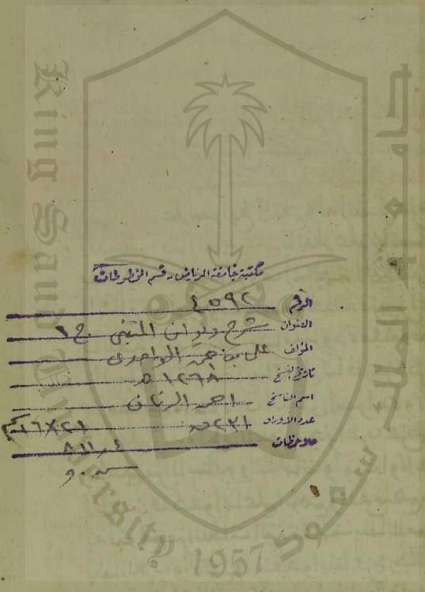 مكتبة جامعة الرياض - قسم المخطوطات
الرقم ٤٥٩٢
العنوان شرح ديوان المتنبي ج ١
المؤلف علي بن احمد الواحدي
تاريخ النسخ ١٢٩٨ هـ
اسم الناسخ احمد
عدد الاوراق ٢٣١ ق ٢١×١٦ سم
ملاحظات ٨١١
King Saud University 1957